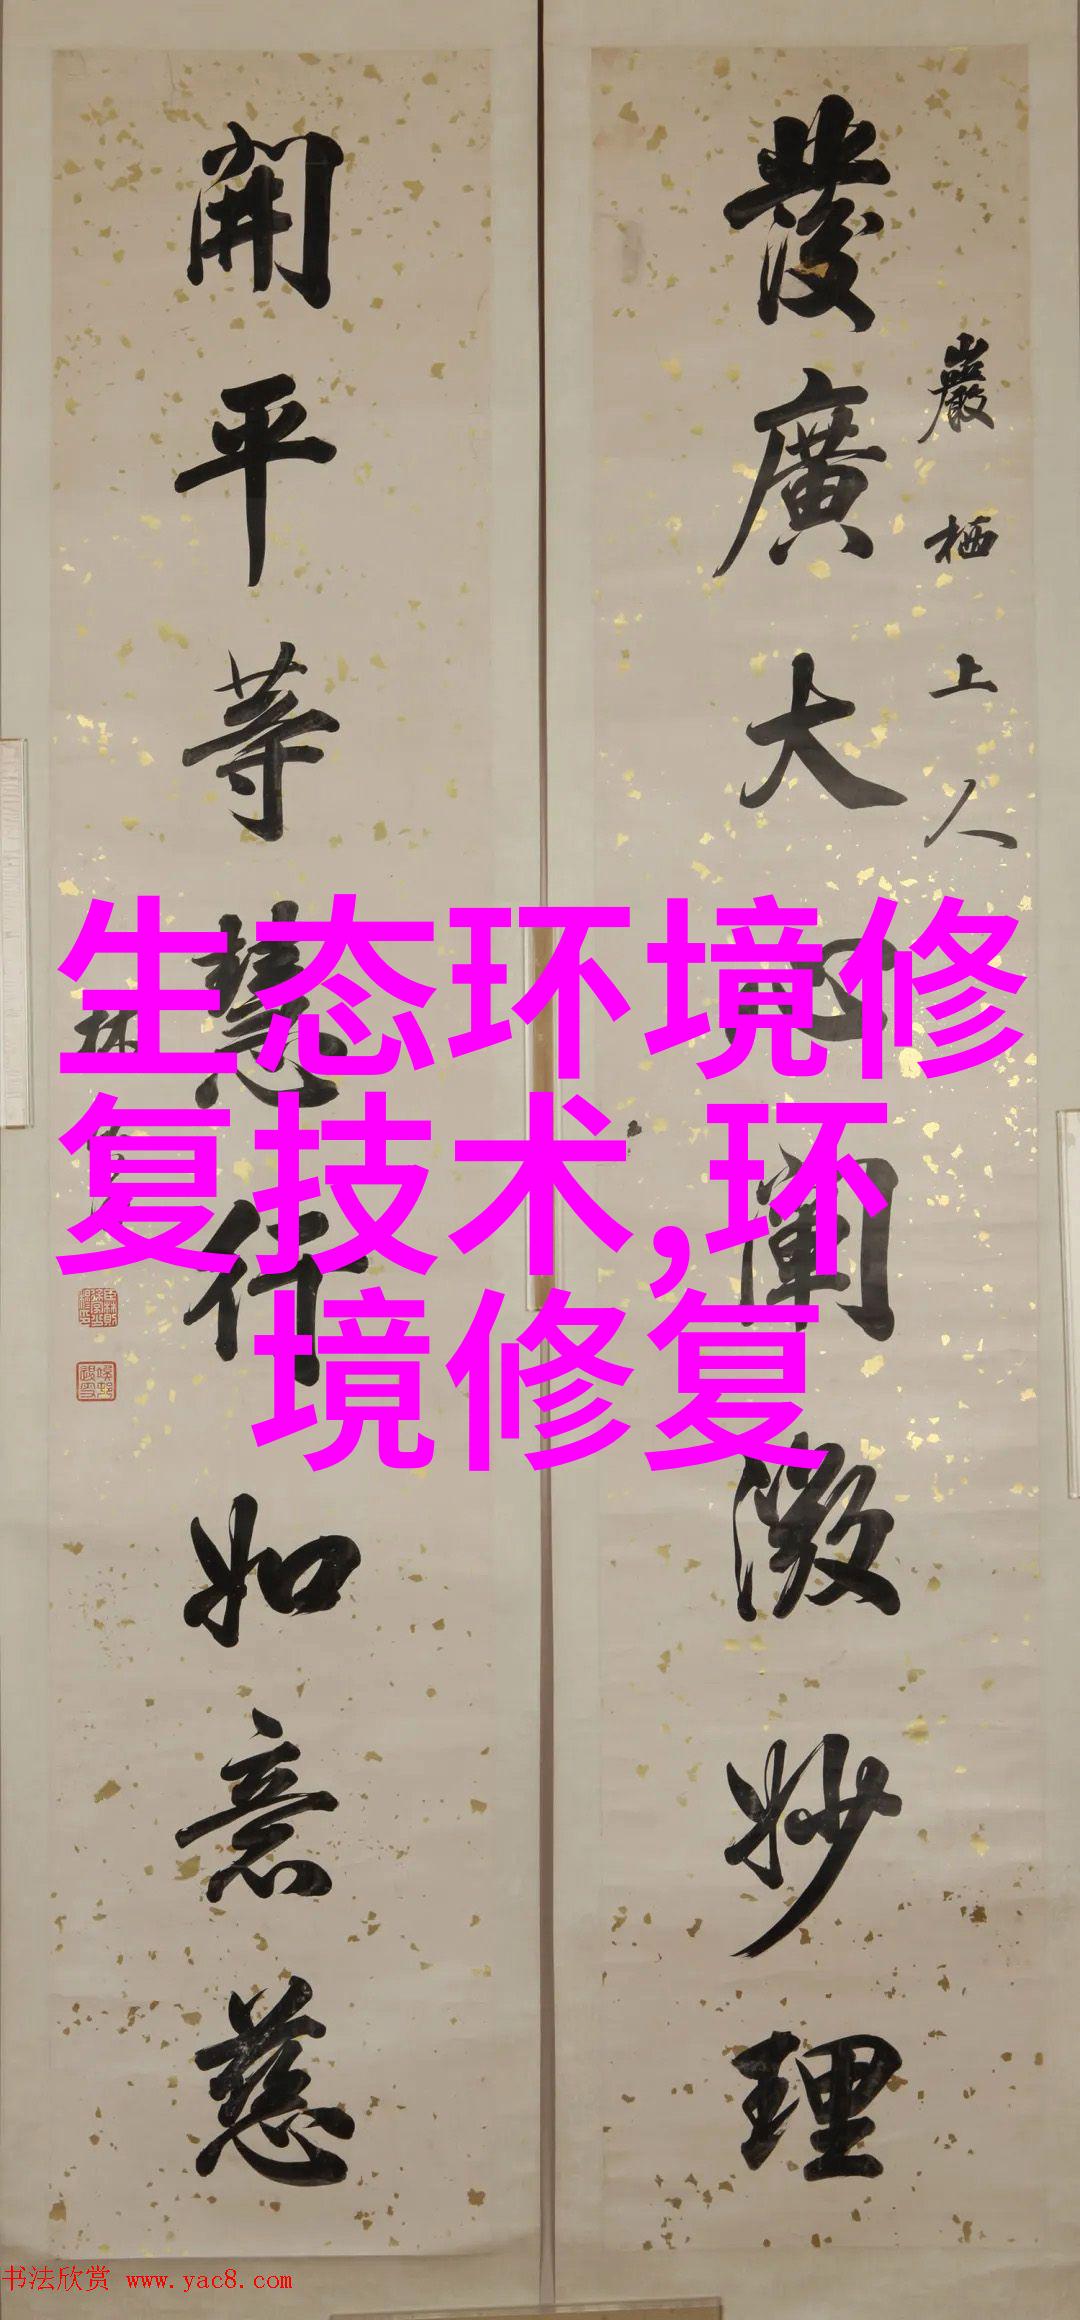 巖栖上人
發廣大心闡微妙理
開平等慧行如意慈
林
生态环境修
复技术,环
境修复
书法欣赏 www.yac8.com